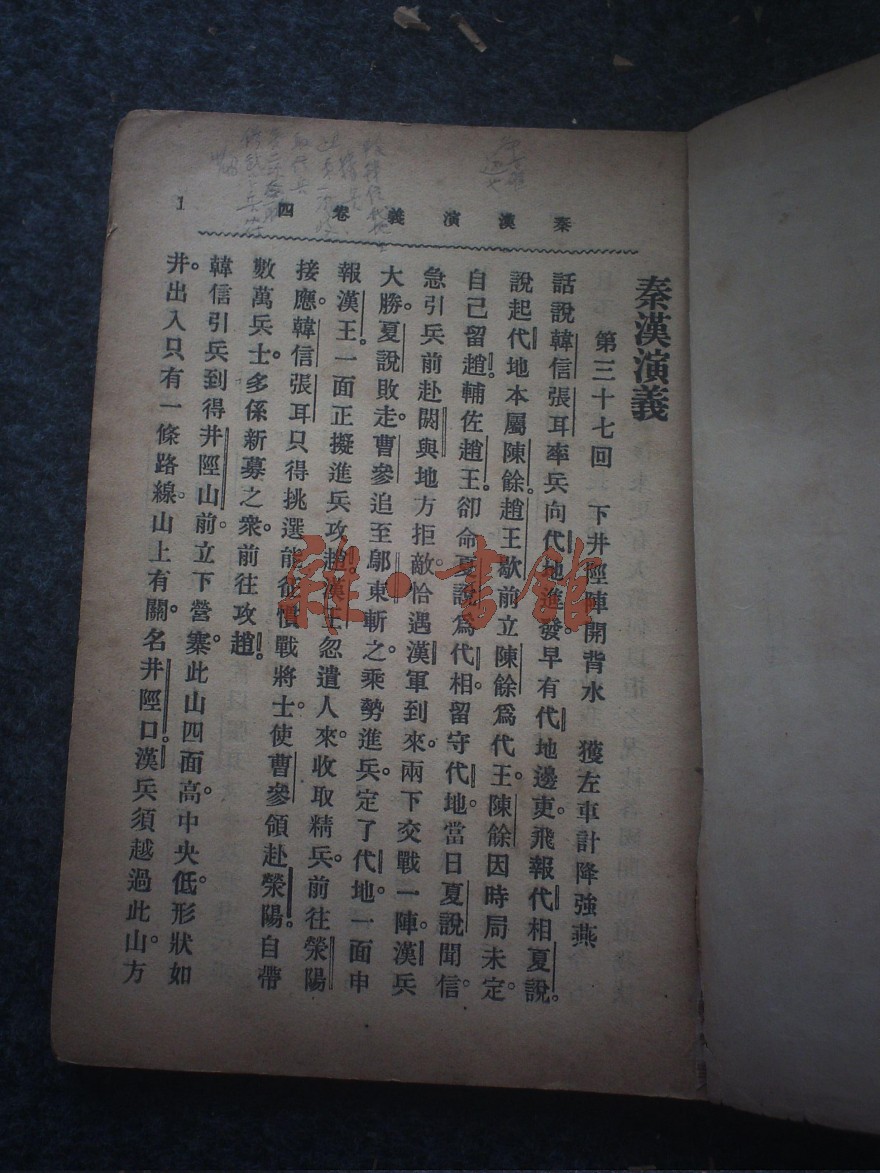 秦漢演義卷四 1
秦漢演義
第三十七回 下井陘陣開背水 獲左車計降強燕
話說韓信張耳率兵向代地進發。早有代地邊吏。飛報代相夏說。
說起代地本屬陳餘。趙王歇前立陳餘為代王。陳餘因時局未定。
自己留趙輔佐趙王。卻命夏說為代相。留守代地。當日夏說聞信。
急引兵前赴閼與地方拒敵。恰遇漢軍到來。兩下交戰一陣。漢兵
大勝。夏說敗走。曹參追至鄔東斬之。乘勢進兵。定了代地。一面申
報漢王。一面正擬進兵攻趙。漢王忽遣人來。收取精兵。前往滎陽
接應。韓信張耳只得挑選能征慣戰將士。使曹參領赴滎陽。自帶
數萬兵士。多係新募之眾。前往攻趙。
韓信引兵到得井陘山前。立下營寨。此山四面高。中央低。形狀如
井。出入只有一條路線。山上有關。名井陘口。漢兵須越過此山。方
雜·書館